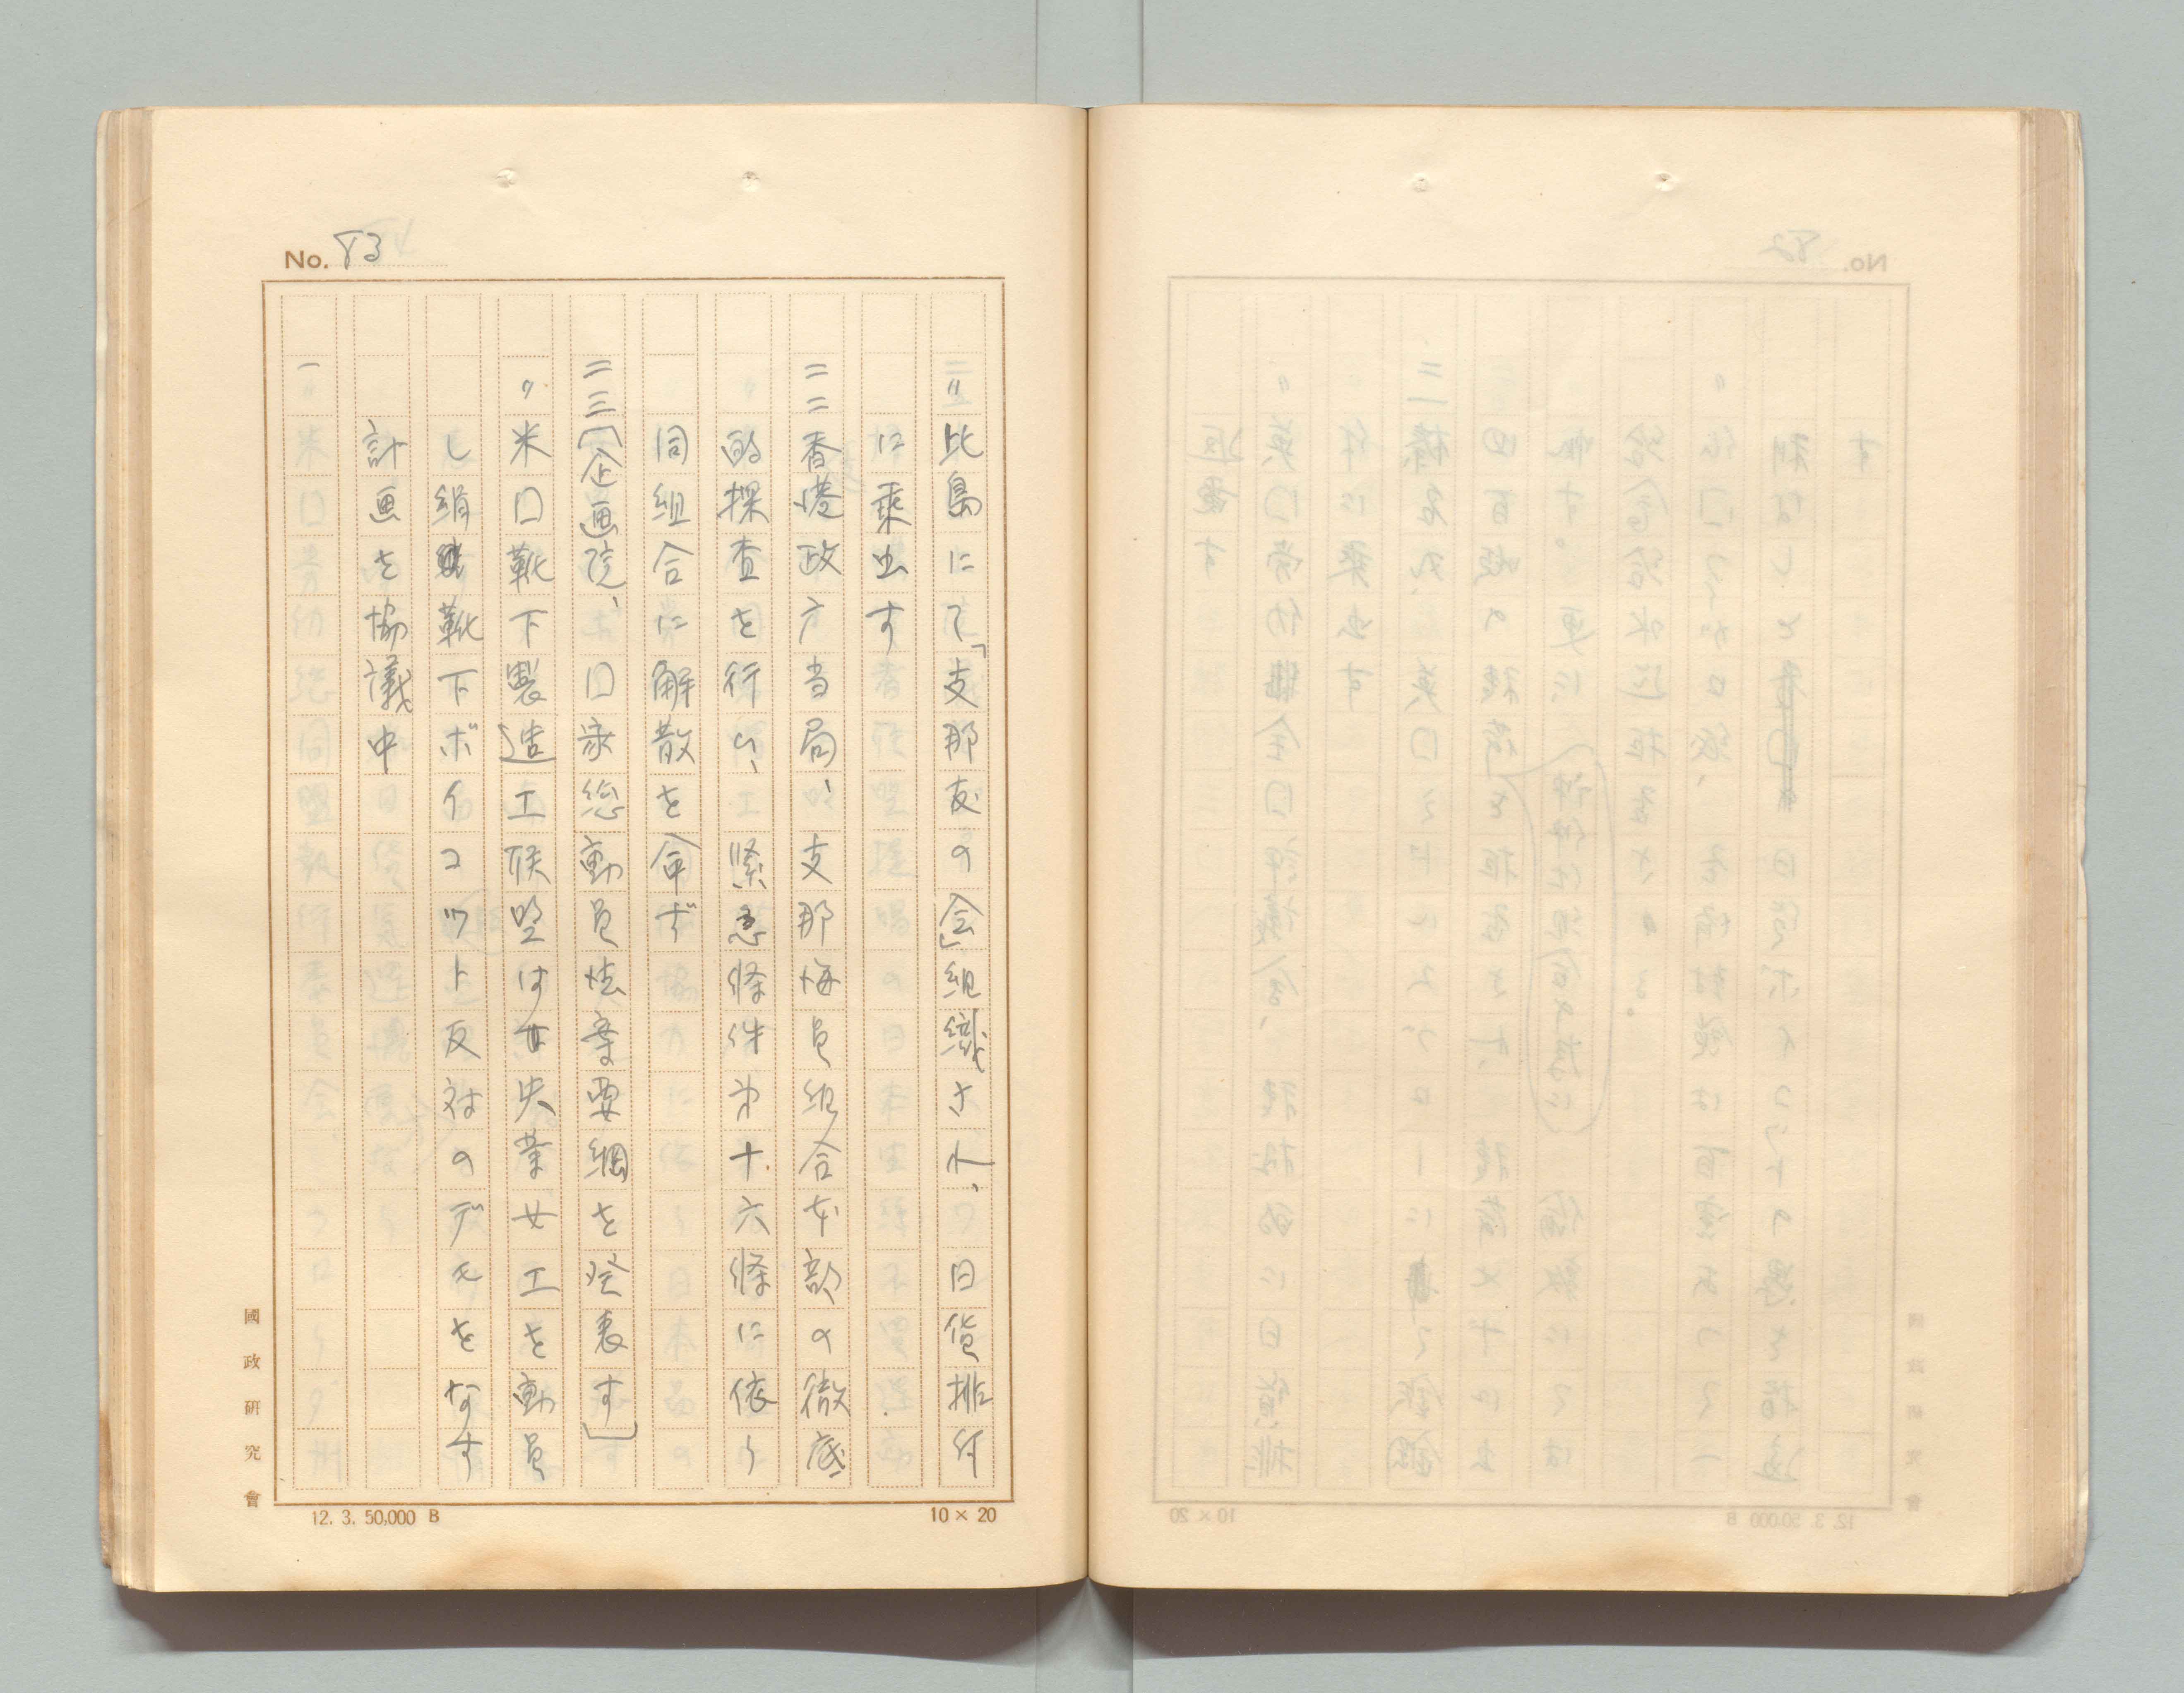 No. 83
〃比島にて「支那友の会」組織され、日貨排斥
に乗出す
二二香港政庁当局、支那海員組合本部の徹底
的探査を行い、緊急條件第十六條に依り
同組合に解散を命ず
二三(企画院、口家総動員法案要綱を発表す)
〃米口靴下製造工联盟は女失業女工を動員
し絹靴下ボイコット反対のデモをなす
計画を協議中
一
國政研究會
12. 3. 50,000 B
10 × 20